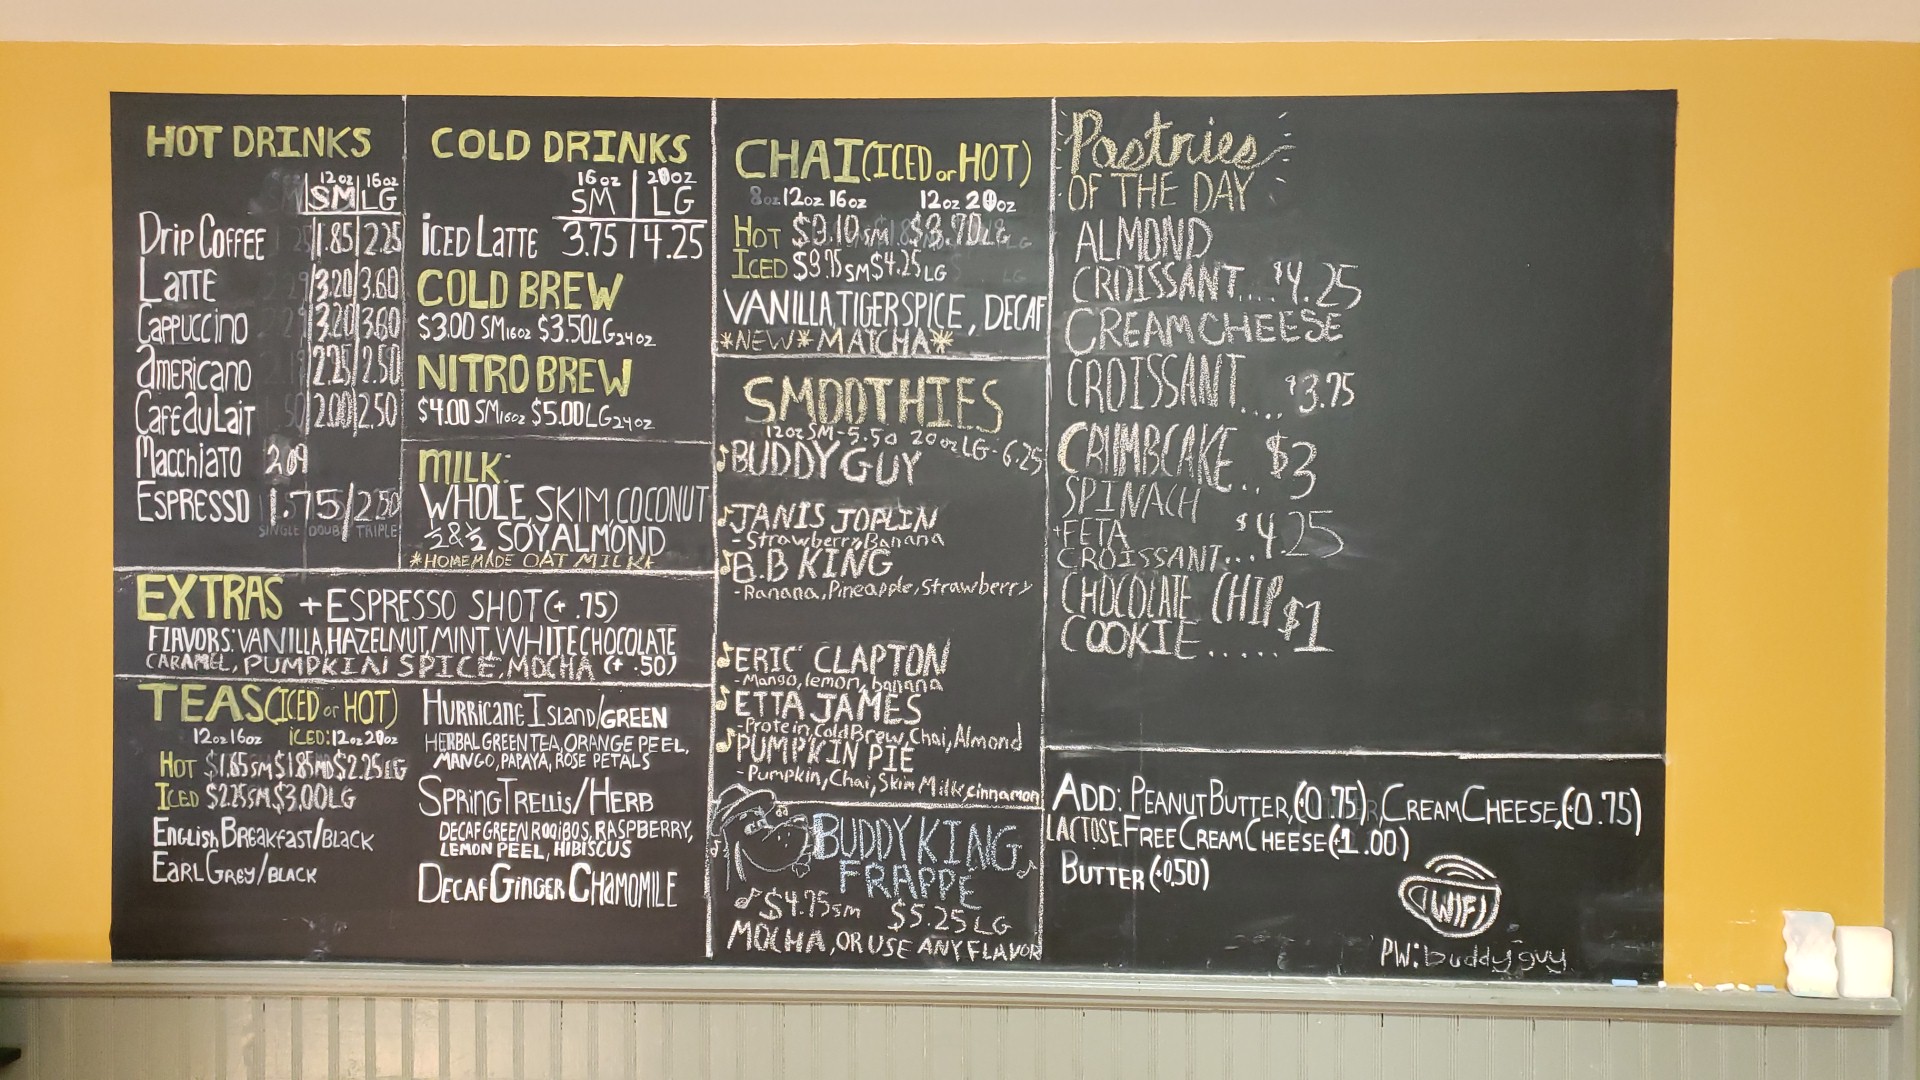 HOT DRINKS
12oz 16oz
SM LG
Drip Coffee 1.85 2.25
Latte 3.20 3.60
Cappuccino 3.20 3.60
americano 2.25 2.50
Cafe du Lait 2.00 2.50
Macchiato 2.09
Espresso 1.75/2.50
SINGLE DOUB TRIPLE
COLD DRINKS
16oz 20oz
SM LG
iCED LATTE 3.75 4.25
COLD BREW
$3.00 SM16oz $3.50LG24oz
NITRO BREW
$4.00 SM16oz $5.00LG24oz
MILK:
WHOLE, SKIM, COCONUT
½&½ SOY ALMOND
*HOMEMADE OAT MILK*
EXTRAS +ESPRESSO SHOT(+.75)
FLAVORS: VANILLA, HAZELNUT, MINT, WHITE CHOCOLATE
CARAMEL, PUMPKIN SPICE, MOCHA (+ .50)
TEAS(ICED or HOT)
12oz 16oz iCED:12oz 20oz
HOT $1.65SM $1.85MD $2.25LG
ICED $2.25SM, $3.00LG
ENGLISH BREAKFAST/BLACK
EARL GREY/BLACK
HURRICANE ISLAND/GREEN
HERBAL GREEN TEA, ORANGE PEEL,
MANGO, PAPAYA, ROSE PETALS
SPRING TRELLIS/HERB
DECAF GREEN ROOIBOS, RASPBERRY,
LEMON PEEL, HIBISCUS
DECAF GINGER CHAMOMILE
CHAI(ICED or HOT)
8oz 12oz 16oz 12oz 20oz
HOT $3.10SM $3.70LG
ICED $3.75SM $4.25LG
VANILLA, TIGERSPICE, DECAF
*NEW* MATCHA*
SMOOTHIES
12oz SM-5.50 20oz LG-6.25
BUDDY GUY
JANIS JOPLIN
-Strawberry, Banana
B.B KING
-Banana, Pineapple, Strawberry
ERIC CLAPTON
-Mango, lemon, banana
ETTA JAMES
-Protein, Cold Brew, Chai, Almond
PUMPKIN PIE
-Pumpkin, Chai, Skim Milk, cinnamon
BUDDY KING
FRAPPE
$4.75sm $5.25LG
MOCHA, OR USE ANY FLAVOR
Pastries
OF THE DAY
ALMOND
CROISSANT....$4.25
CREAMCHEESE
CROISSANT.... $3.75
CRUMBCAKE... $3
SPINACH
+FETA
CROISSANT... $4.25
CHOCOLATE CHIP
COOKIE..... $1
ADD: PEANUT BUTTER, (+0.75), CREAM CHEESE, (+0.75)
LACTOSE FREE CREAM CHEESE (+1.00)
BUTTER (+0.50)
WIFI
PW: buddyguy